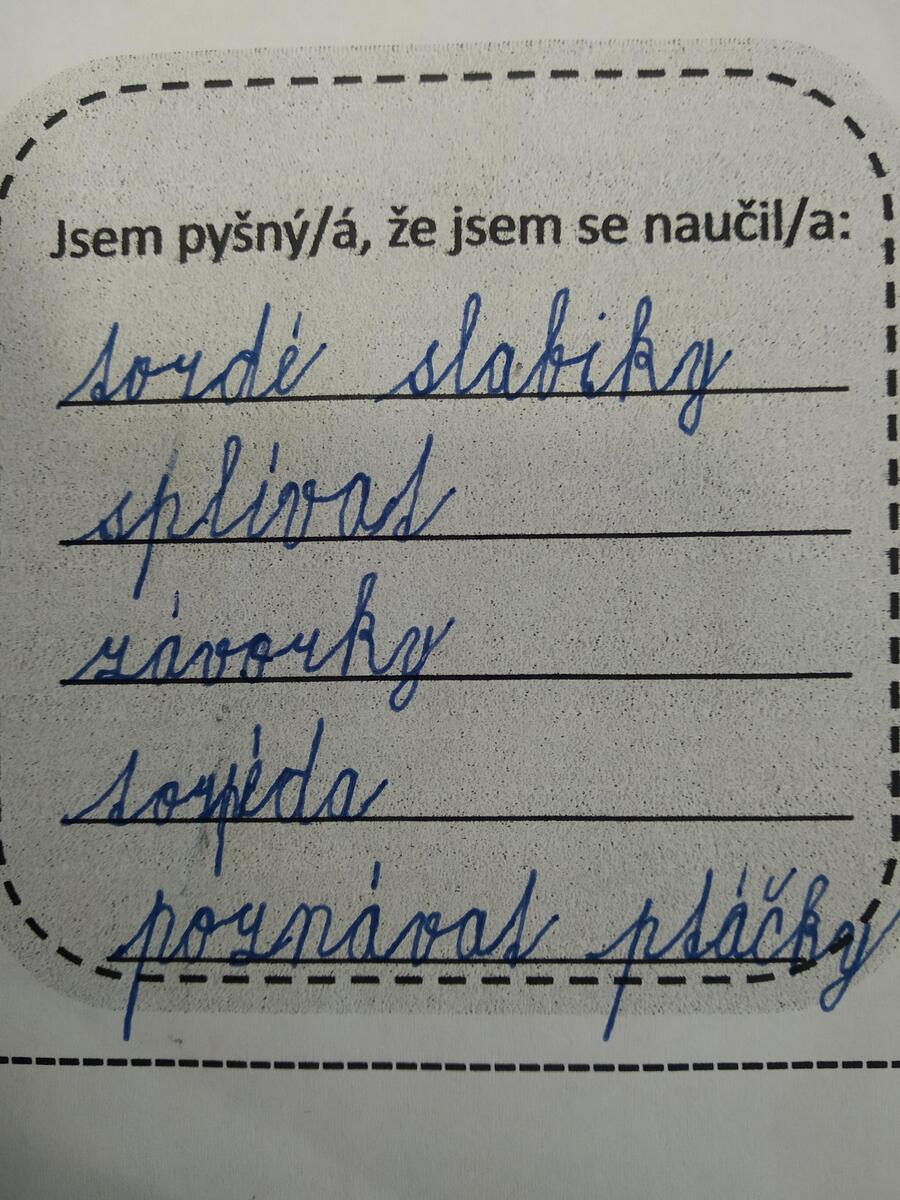 Jsem pyšný/á, že jsem se naučil/a:
tvrdé slabiky
splívat
závorky
torpéda
poznávat ptáčky